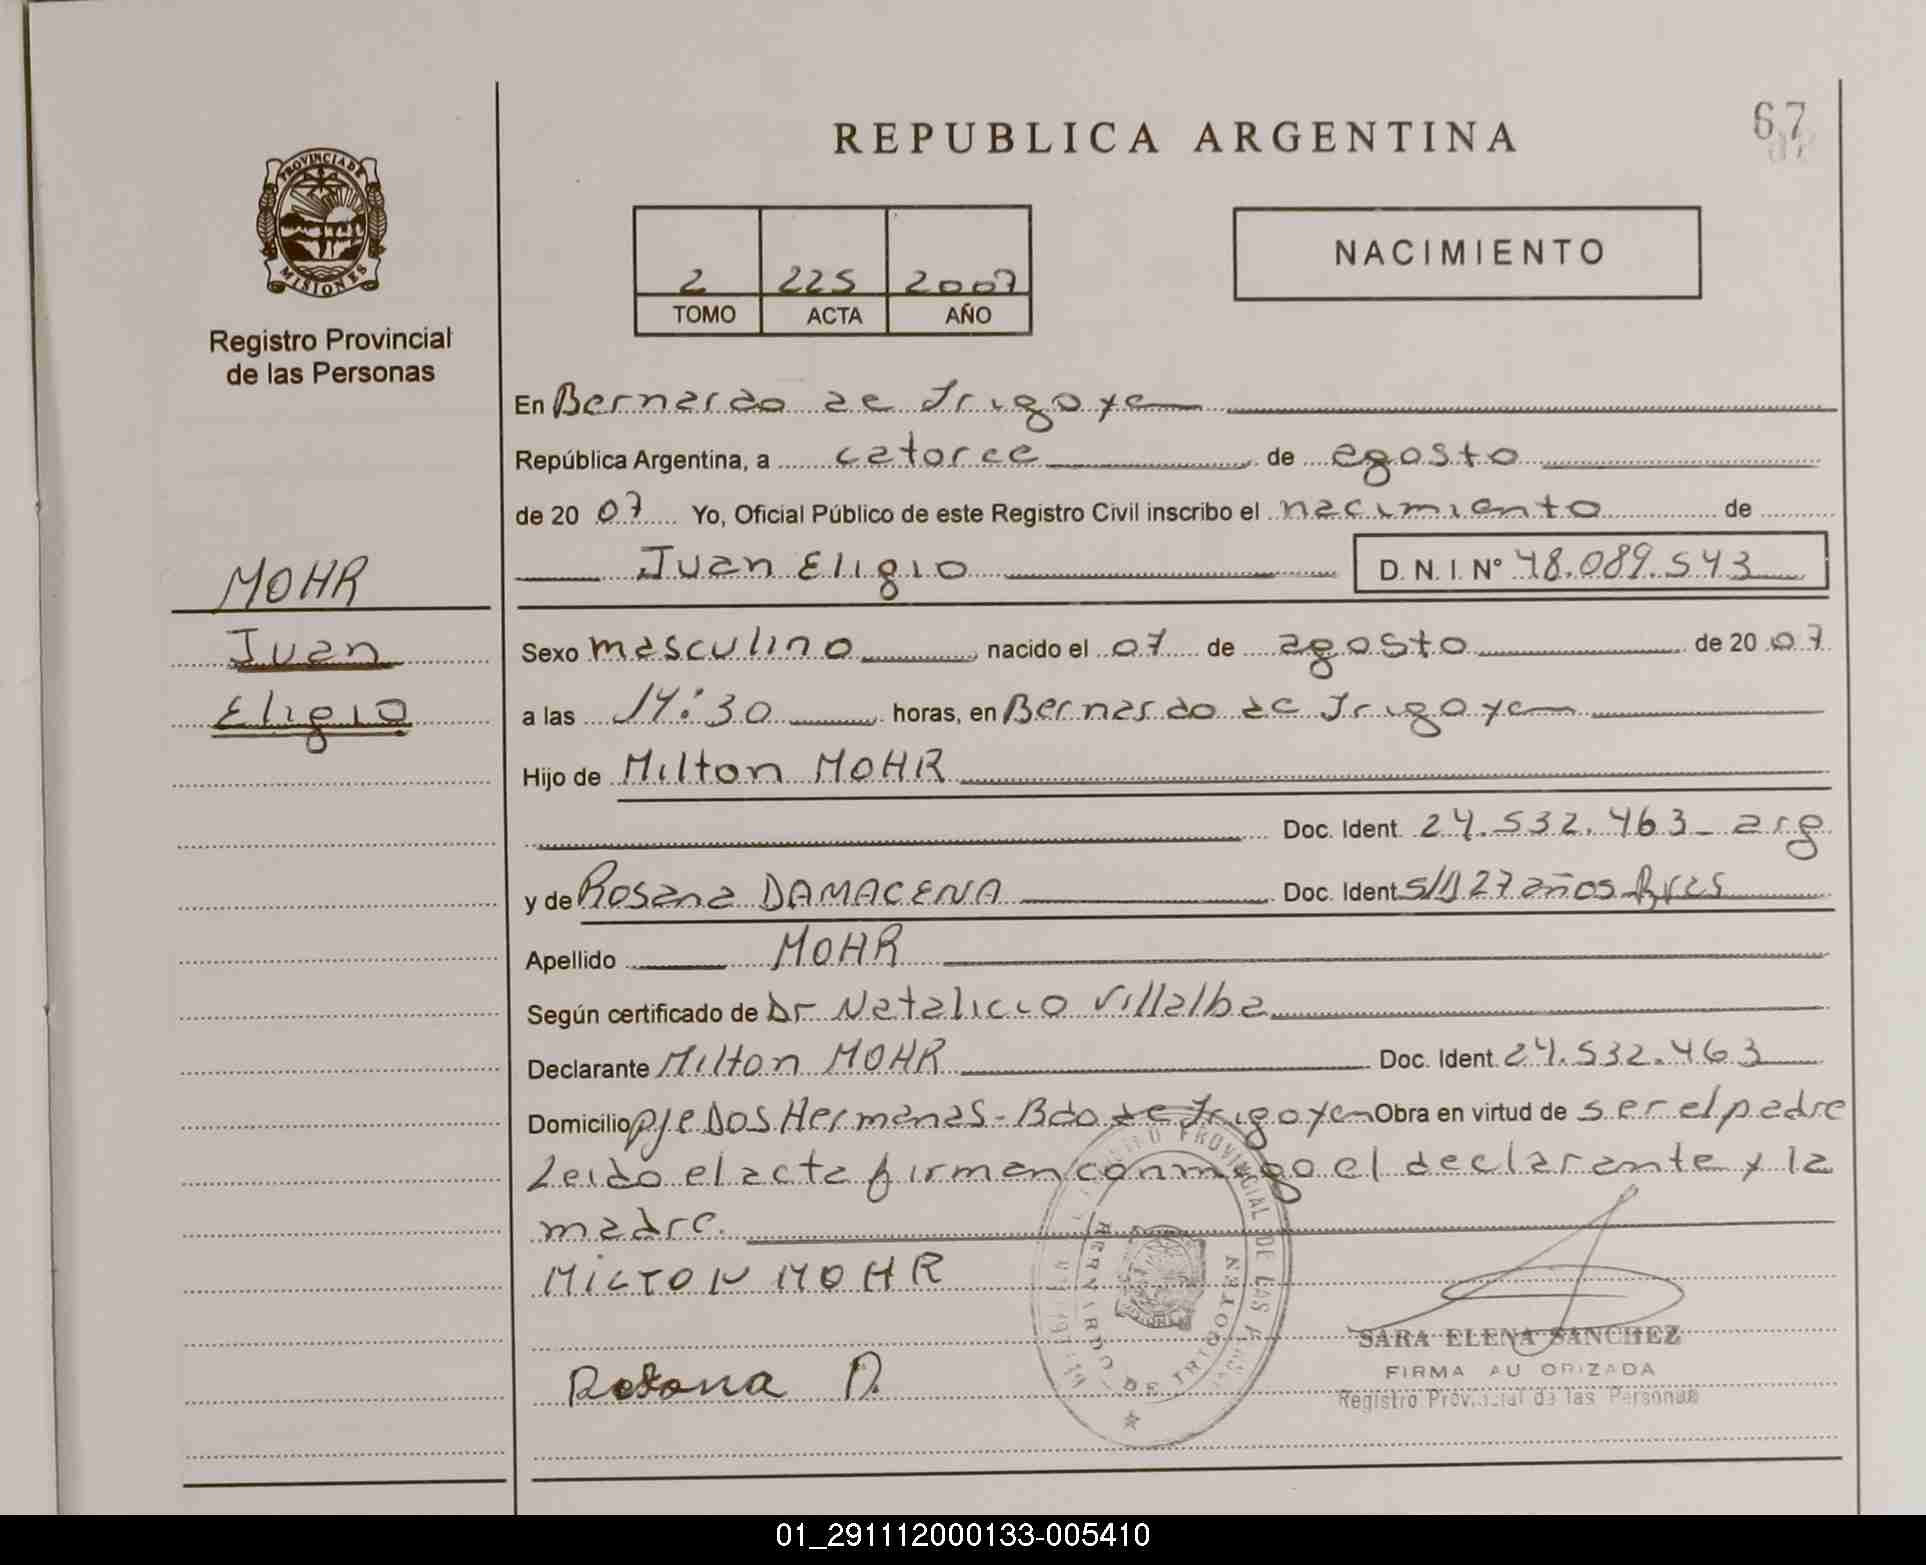 REPUBLICA ARGENTINA
67
PROVINCIA DE
MISIONES
Registro Provincial
de las Personas
2 225 2007
TOMO ACTA AÑO
NACIMIENTO
En Bernardo de Irigoyen
República Argentina, a catorce de agosto
de 2007 Yo, Oficial Público de este Registro Civil inscribo el nacimiento de
Juan Eligio D. N. I. N° 48.089.543
MOHR
Juan
Eligio
Sexo masculino nacido el 07 de agosto de 2007
a las 14:30 horas, en Bernardo de Irigoyen
Hijo de Milton MOHR
Doc. Ident. 24.532.463 arg
y de Rosana DAMACENA Doc. Ident. S/D 27 años Bras
Apellido MOHR
Según certificado de Dr Natalicio Villalba
Declarante Milton MOHR Doc. Ident. 24.532.463
Domicilio pje Dos Hermanas - Bdo de Irigoyen Obra en virtud de ser el padre
Leido el acta firman conmigo el declarante y la
madre.
MILTON MOHR
Rosana D.
PROVINCIAL DE LAS
BERNARDO DE IRIGOYEN
SARA ELENA SANCHEZ
FIRMA AUTORIZADA
Registro Provincial de las Personas
01_291112000133-005410